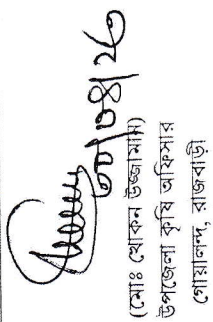 ৩১/০৪/২২
(মোঃ খোকন উজ্জামান)
উপজেলা কৃষি অফিসার
গোয়ালন্দ, রাজবাড়ী